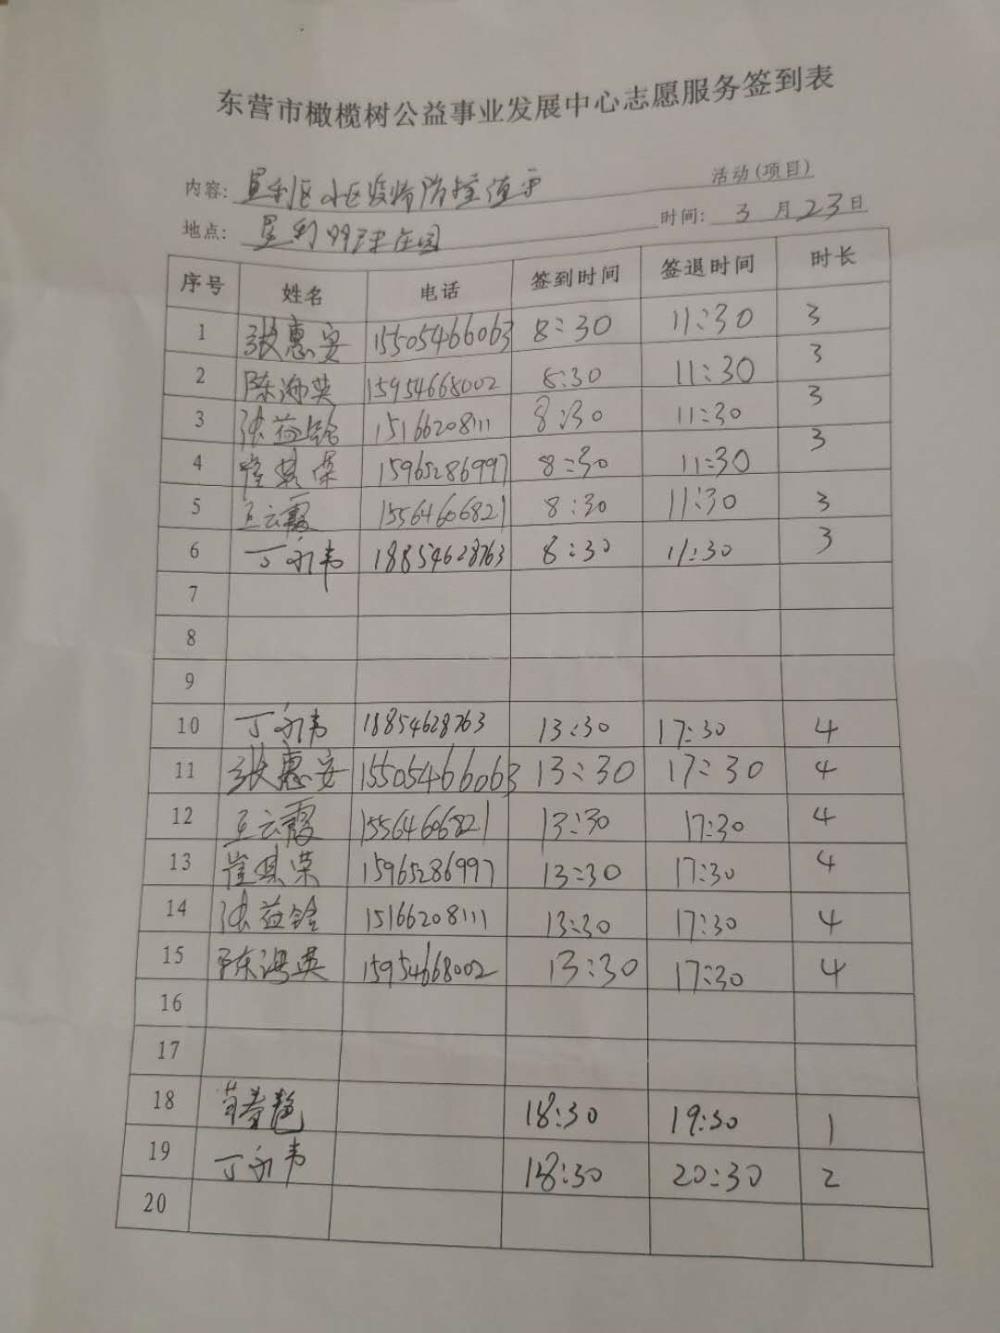 东营市橄榄树公益事业发展中心志愿服务签到表
内容: 垦利区小区疫情防控值守 活动(项目)
地点: 垦利 庄园 时间: 3月23日
序号 姓名 电话 签到时间 签退时间 时长
1 张惠安 15505466063 8:30 11:30 3
2 陈海英 15954668002 8:30 11:30 3
3 张益铃 15166208111 8:30 11:30 3
4 崔其荣 15965286997 8:30 11:30 3
5 王云霞 15564606821 8:30 11:30 3
6 丁永韦 18854628763 8:30 11:30 3
7
8
9
10 丁永韦 18854628763 13:30 17:30 4
11 张惠安 15505466063 13:30 17:30 4
12 王云霞 15564606821 13:30 17:30 4
13 崔其荣 15965286997 13:30 17:30 4
14 张益铃 15166208111 13:30 17:30 4
15 陈海英 15954668002 13:30 17:30 4
16
17
18 18:30 19:30 1
19 丁永韦 18:30 20:30 2
20